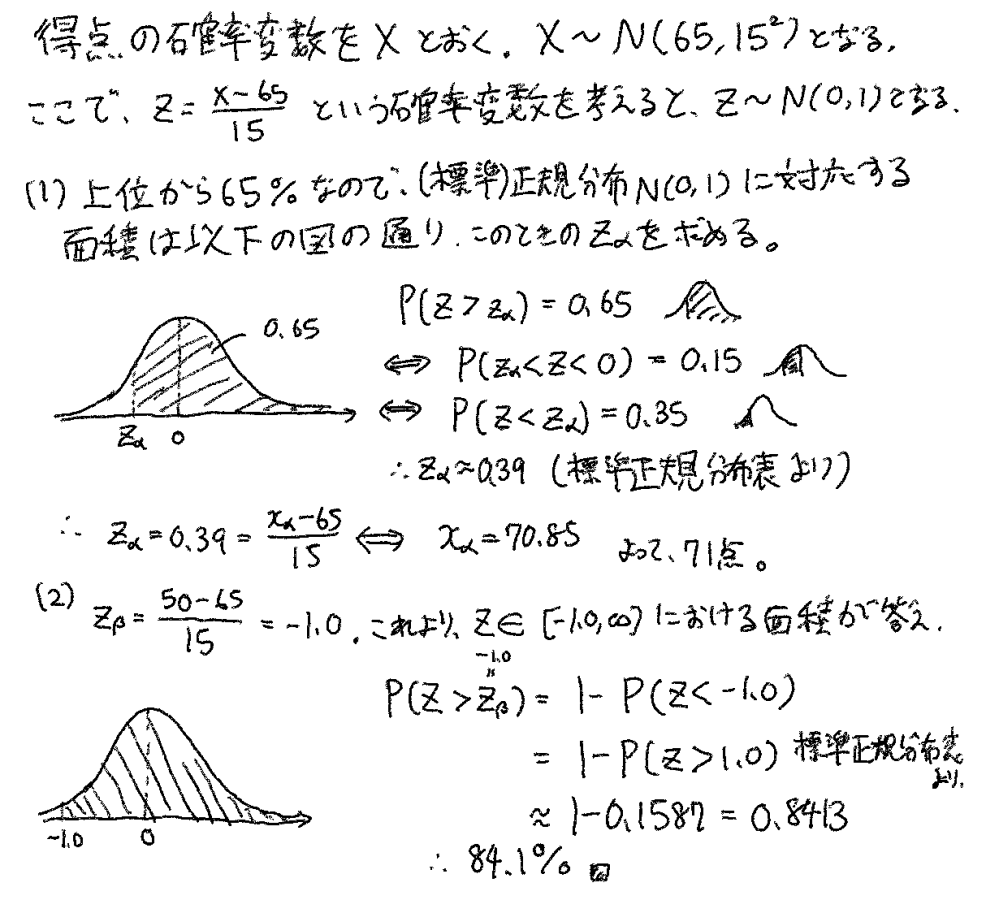 得点の確率変数をXとおく. X~N(65,15²)となる.
ここで、Z=(X-65)/15 という確率変数を考えると、Z~N(0,1)となる.
(1) 上位から65%なので、(標準)正規分布N(0,1)に対応する
面積は以下の図の通り. このときのZαを求める。
0.65
Zα 0
P(Z>zα)=0.65
⇔ P(zα<Z<0)=0.15
⇔ P(Z<zα)=0.35
∴zα≈0.39 (標準正規分布表より)
∴ zα=0.39=(xα-65)/15 ⇔ xα=70.85 よって、71点。
(2) zβ=(50-65)/15=-1.0. これより、Z∈[-1.0,∞)における面積が答え.
-1.0
P(Z>zβ)=1-P(Z<-1.0)
=1-P(Z>1.0) 標準正規分布表より.
≈1-0.1587=0.8413
∴ 84.1%
-1.0 0